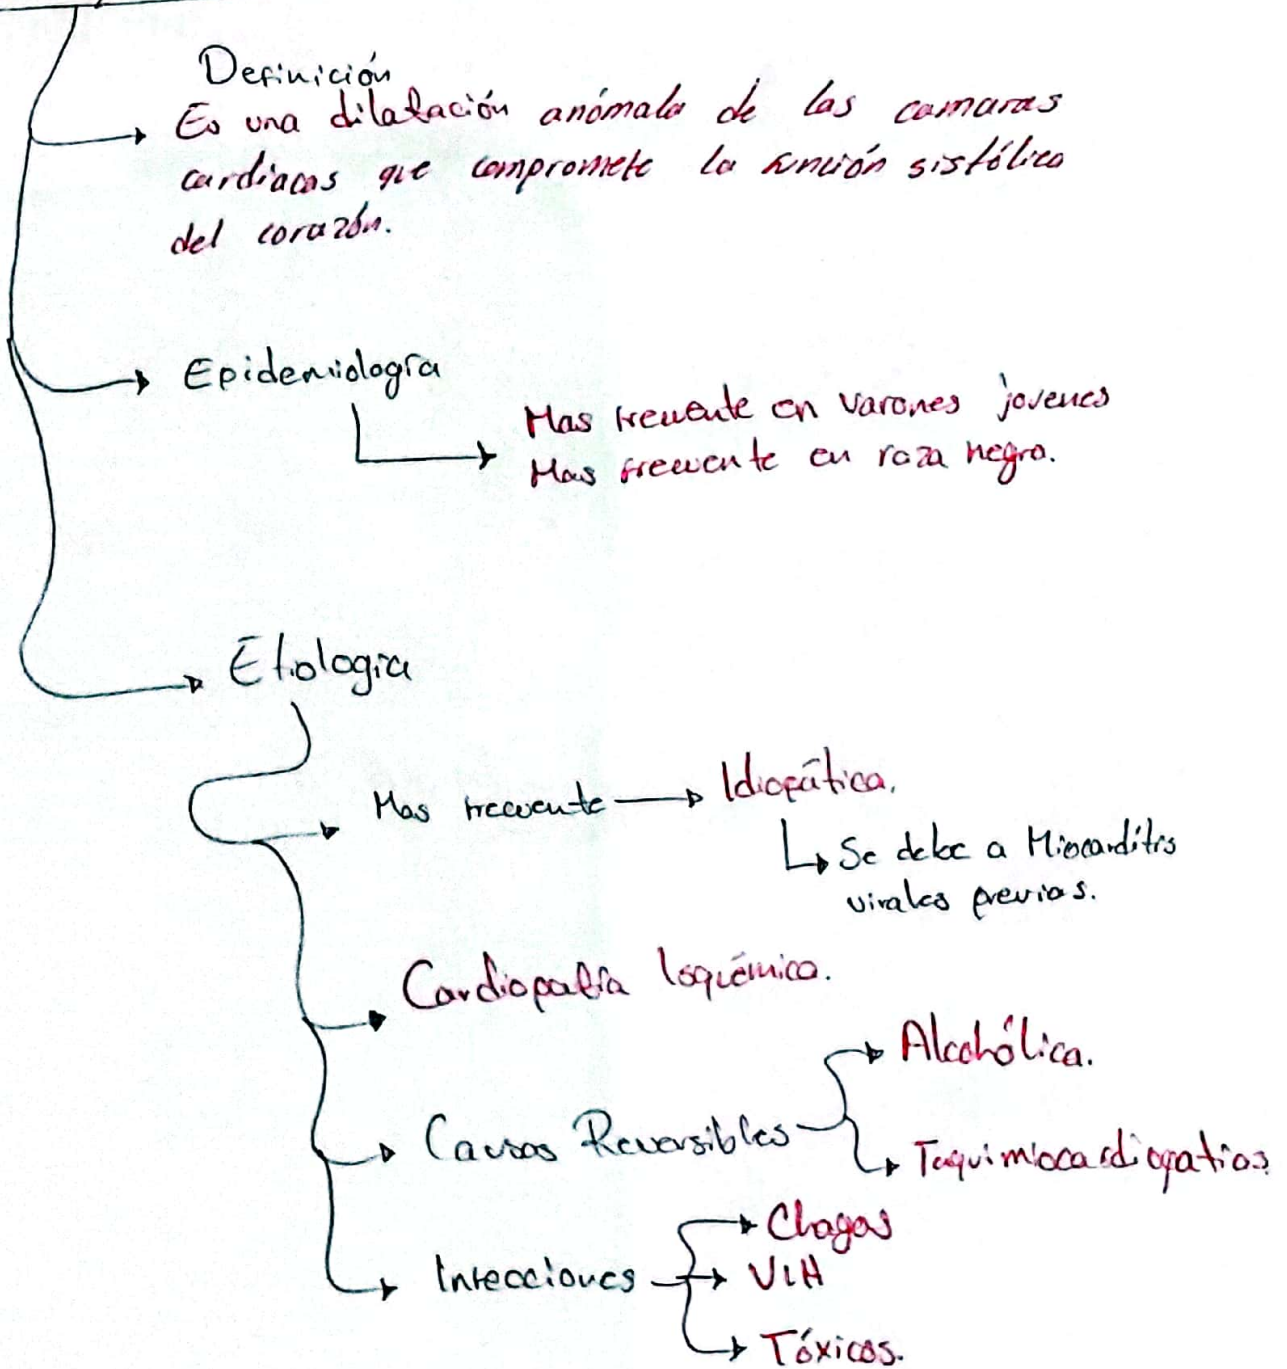 Definición
Es una dilatación anómala de las camaras
cardiacas que compromete la función sistólica
del corazón.
Epidemiología
Mas frecuente en varones jovenes
Mas frecuente en raza negra.
Etiologia
Mas frecuente
Idiopática.
Se debe a Miocarditis
virales previas.
Cardiopatía Isquémica.
Alcohólica.
Causas Reversibles
Taquimiocardiopatias
Chagas
Infecciones
VIH
Tóxicos.